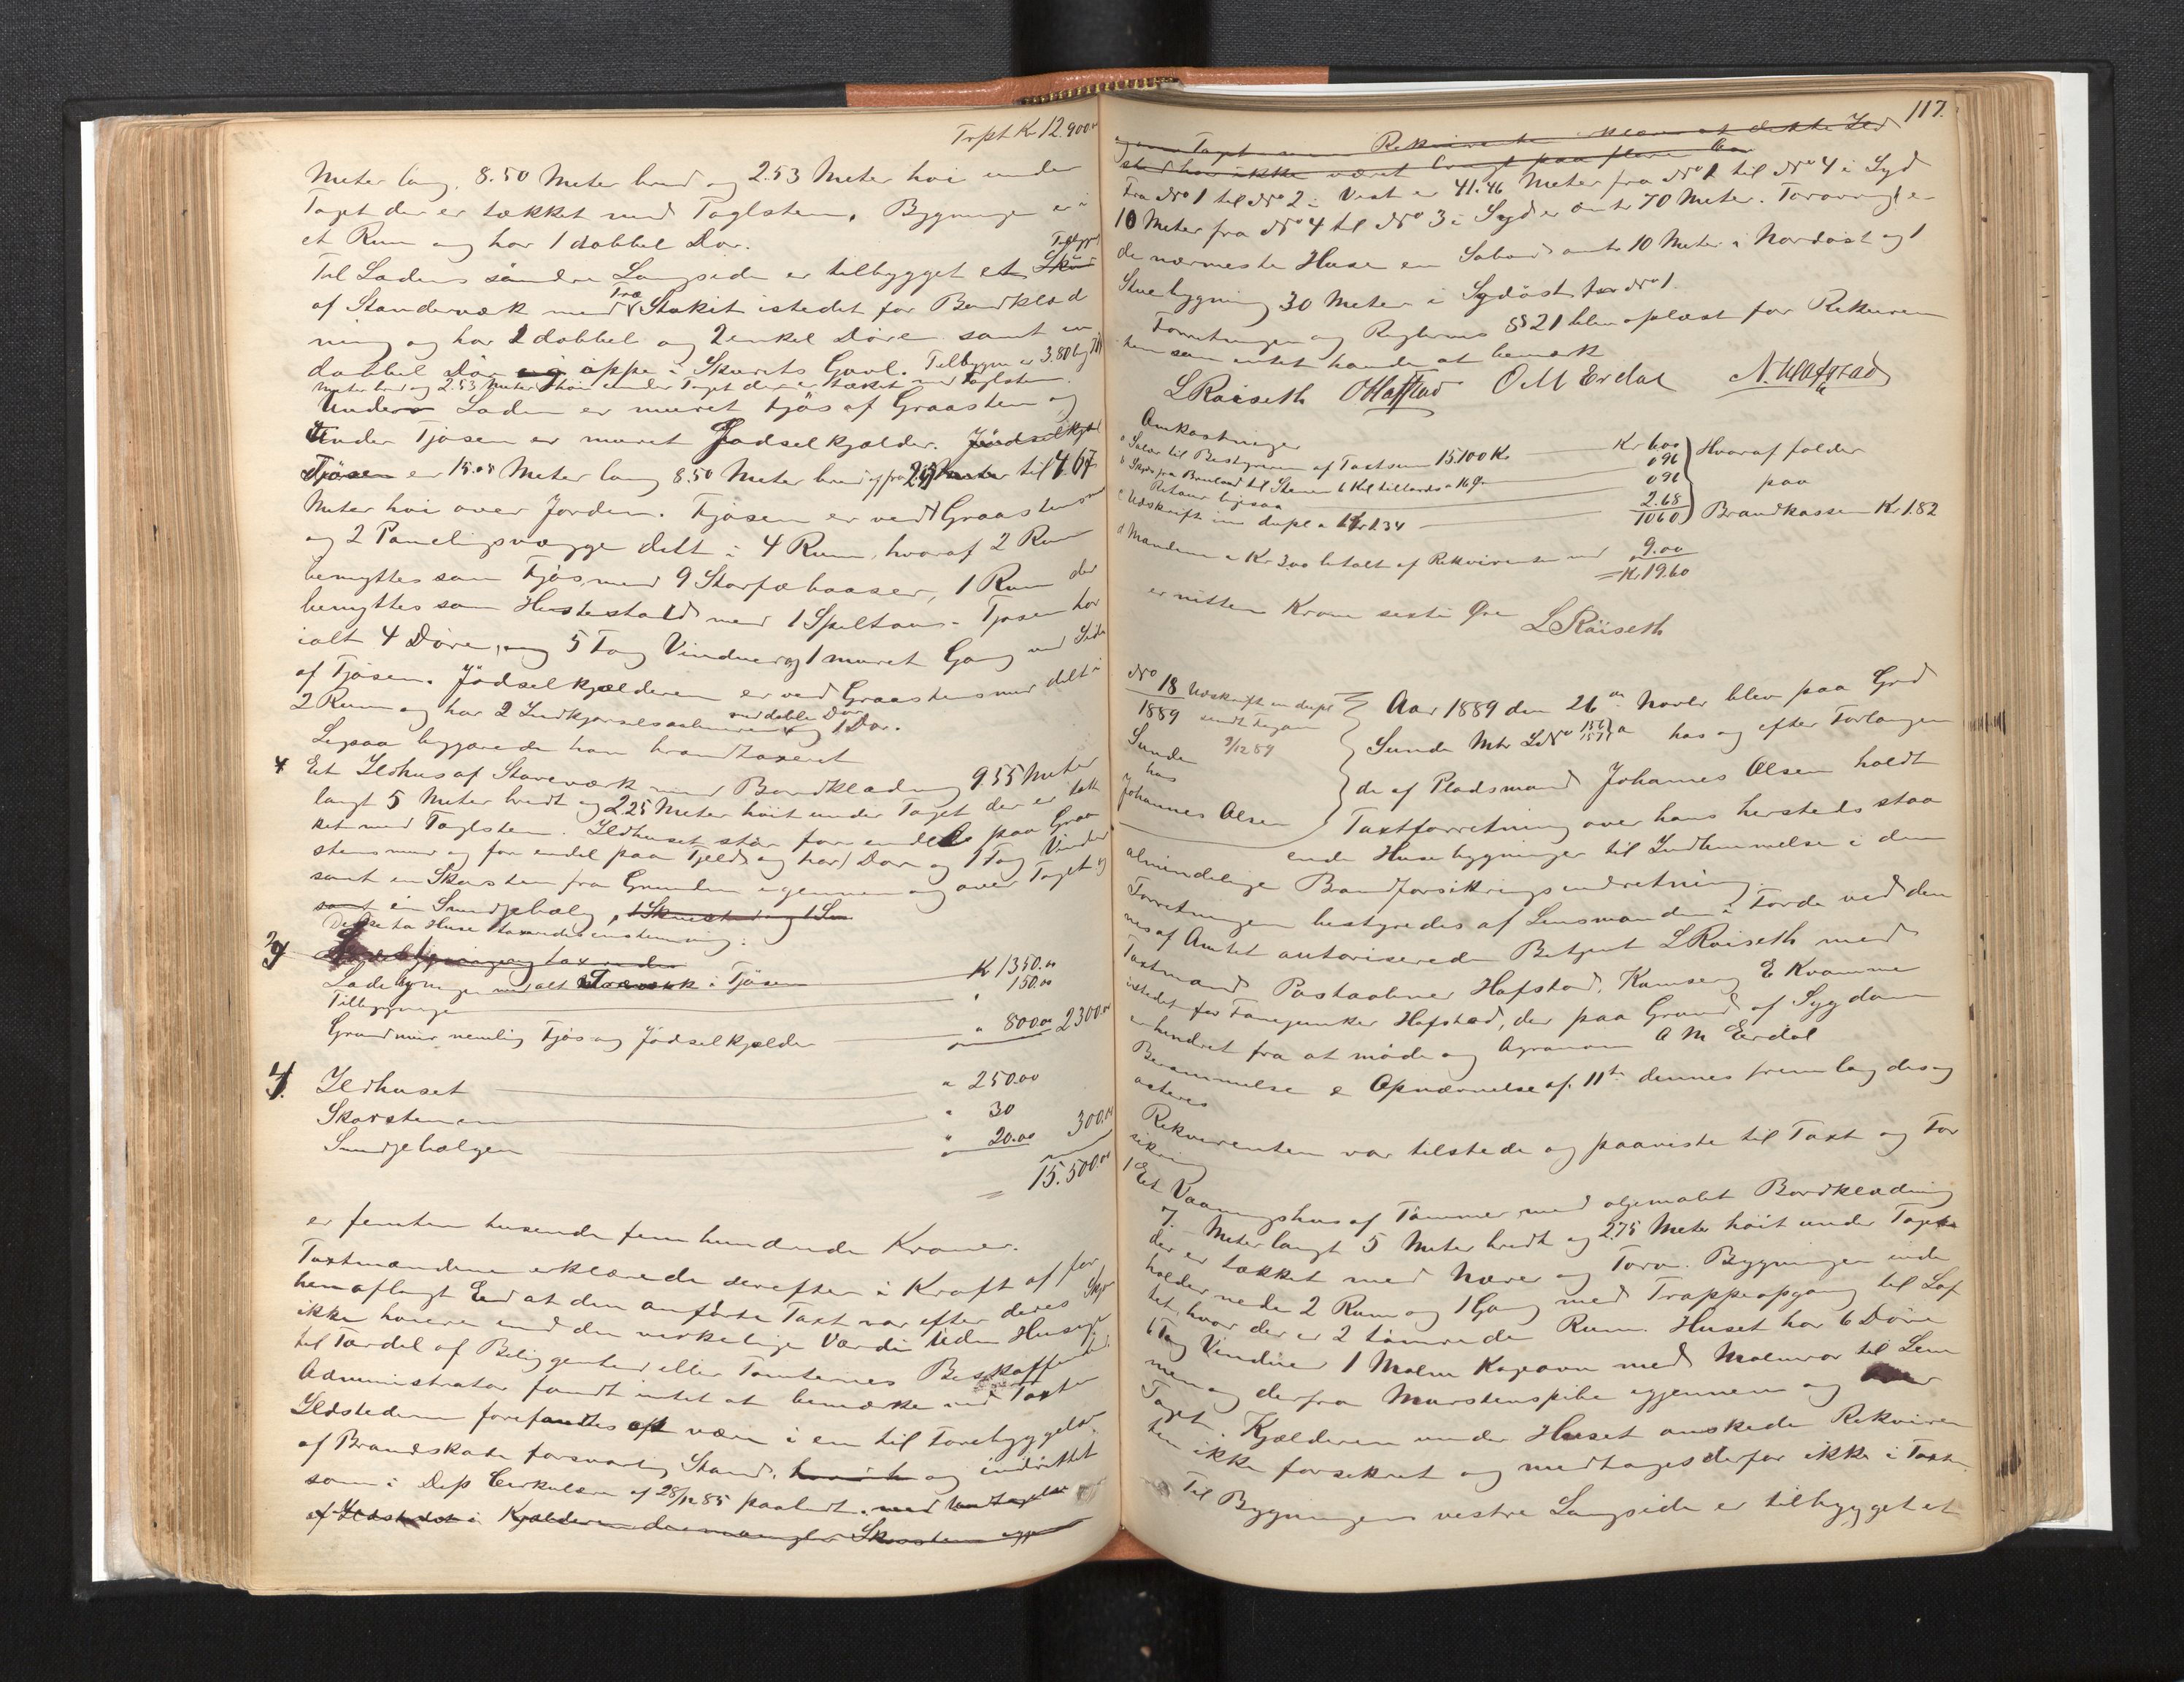 Trpt Kr 12.900.00
Meter lang, 8.50 Meter bred og 2.53 Meter høi under
Taget der er tækket med Taglsten, Bygningen er i
et Rum og har 1 dobbel Dør.
Til Ladens søndre Langside er tilbygget et Skur Tilbygg
af Standerværk med Træ Stakit istedet for Bordklæd
ning og har 2 dobbel og 2 enkel Døre samt en
dobbel Dør oppe i Skurets Gavl. Tilbyggn er 3.80 lg
Meter bred og 2.53 Meter høi under Taget der er tækket med Taglsten.
Under Laden er muret Fjøs af Graasten og
Under Fjøsen er muret Jødselkjælder. Jødselkjæl
Fjøsen er 15.05 Meter lang 8.50 Meter bred og fra til 4.67
Meter høi over Jorden. Fjøsen er ved Graastens
og 2 Panelingsvægge delt i 4 Rum, hvoraf 2 Rum
benyttes som Fjøs, med 9 Storfæbaaser, 1 Rum der
benyttes som Hestestald med 1 Spiltaug. Fjøsen har
ialt 4 Døre, og 5 Fag Vinduer og 1 muret Gang ved Side
af Fjøsen. Jødselkjælderen er ved Graastensmur delt i
2 Rum og har 2 Indkjørselsaabninger med doble Dør og 1 Dør.
Ligesaa begjærede han brandtaxeret
4 Eet Ildhus af Staveværk med Bordklædning 9.55 Meter
langt 5 Meter bredt og 2.25 Meter høit under Taget der er tæk
ket med Taglsten. Ildhuset står for endel paa Graa
stensmur og for endel paa Fjeld og har 1 Dør og 1 Fag Vindue
samt en Skorsten fra Grunden igjennem og over Taget og
samt en Smidjebælg,
Disse to Huse taxeredes enstemmig:
3) Ladebygningen med alt i Fjøsen K 1350.00
Tilbygninger " 150.00
Grundmur nemlig Fjøs og Jødselkjælder " 800.00 2300.00
4) Ildhuset " 250.00
Skorstenen " 30
Smidjebælgen " 20.00 300.00
= 15.500.00
er femten tusende fem hundrede Kroner.
Taxtmændene erklærede derefter i Kraft af før
hen aflagt Eed at den anførte Taxt var efter deres Skjøn
ikke høiere end den virkelige Værdi uden Hensyn
til Fordel af Beliggenhed eller Tomternes Beskaffenhed
Administrator fandt intet at bemærke ved Taxten
Ildstederne forefandtes at være i en til Forebyggelse
af Brandskade forsvarlig Stand, og indrettet
som i Dep Cirkulære af 28/12 85 paabudt. med Undtagelse
af Ildstedet i Kjælderen der mangler Skorsten igj
117.
Taget Rekvirenten at dette Ild
sted har ikke været brugt paa flere Aar
Fra No 1 til No 2 i Vest er 41.46 Meter fra No 1 til No 4 i Syd
10 Meter fra No 4 til No 3 i Syd er omtr 70 Meter. Forøvrigt e
de nærmeste Huse en omtr 10 Meter i Nordøst og 1
Stuebygning 30 Meter i Sydøst for No 1.
Forretningen og Reglernes § 21 blev oplæst for Rekviren
ten som intet havde at bemærk
L Røiseth O Hafstad O M Erdal N. Hafstad
Omkostninger
a Salær til Bestyreren af Taxtsum 15.100 Kr Kr 6.00
b Skyds fra Bruland til 6 Kil tillands a 16 Ør 0 96
Retour ligesaa 0 96
c Udskrift in dupl a Kr 1.34 2.68
10 60
Hvoraf falder
paa
Brandkassen Kr 1.82
d Mændene a Kr 3.00 betalt af Rekvirenten med 9.00
= Kr 19.60
er nitten Krone sexti Øre L Røiseth
No 18 Udskrift in dupl
1889 sendt Fogden
Sunde 9/12 89
hos
Johannes Olsen
Aar 1889 den 26de Novbr blev paa Grd
Sunde Mtr LNo 156/157 a hos og efter Forlangen
de af Pladsmand Johannes Olsen holdt
Taxtforretning over hans hersteds staa
ende Husebygninger til Indlemmelse i den
almindelige Brandforsikringsindretning.
Forretningen bestyredes af Lensmanden i Førde ved den
nes af Amtet autoriserede Betjent L Røiseth med
Taxtmænd Postaabner Hafstad, E Kvamme
istedet for Fanejunker Hafstad, der paa Grund af Sygdom
er hindret fra at møde og Agronom O M Erdal
Berammelse & Opnævnelse af. 11te dennes fremlagdes og
acteres
Rekvirenten var tilstede og paaviste til Taxt og For
sikring
1 Eet Vaaningshus af Tømmer med oljemalet Bordklædning
7. – Meter langt 5 Meter bredt og 2.75 Meter høit under Taget
der er tækket med Næver og Torv. Bygningen inde
holder nede 2 Rum og 1 Gang med Trappeopgang til Lof
tet, hvor der er 2 tømrede Rum. Huset har 6 Døre
6 Fag Vinduer 1 Malm Kogeovn med Malmrør til Lem
men og derfra Murstenspibe igjennem og over
Taget. Kjælderen under Huset ønskede Rekviren
ten ikke forsekret og medtages derfor ikke i Taxten
Til Bygningens vestre Langside er tilbygget et